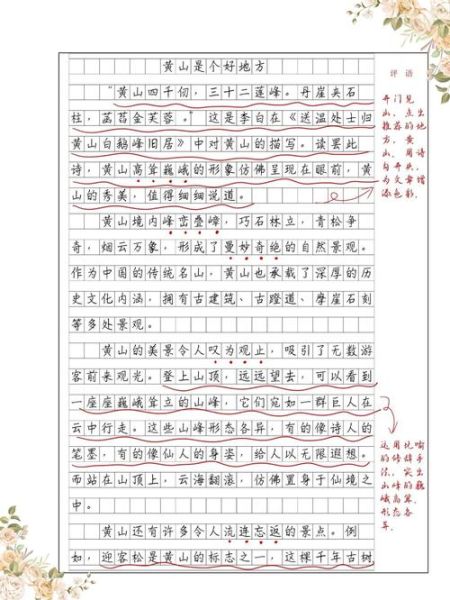 黄山是个好地方
“黄山四千仞，三十二莲峰。丹崖夹石
柱，菡萏金芙蓉。”这是李白在《送温处士归
黄山白鹅峰旧居》中对黄山的描写。读罢此
诗，黄山高耸巍峨的形象仿佛呈现在眼前，黄
山的秀美，值得细细说道。
黄山境内峰峦叠嶂，巧石林立，青松争
奇，烟云万象，形成了曼妙奇绝的自然景观。
作为中国的传统名山，黄山也承载了深厚的历
史文化内涵，拥有古建筑、古蹬道、摩崖石刻
等多处景观。
黄山的美景令人叹为观止，吸引了无数游
客前来观光。登上山顶，远远望去，可以看到
一座座巍峨耸立的山峰，它们宛如一群巨人在
云中行走。这些山峰形态各异，有的像诗人的
笔墨，有的像仙人的身姿，给人以无限遐想。
而站在山顶上，云海翻滚，仿佛置身于仙境之
中。
黄山还有许多令人流连忘返的景点。例
如，迎客松是黄山的标志之一，这棵千年古树
评语
开门见
山，点出
推荐的地
方，黄
山，用诗
句开头，
为文章增
添色彩。
运用比喻
的修辞手
法，突出
山峰的巍
峨高耸、
形态各
异。